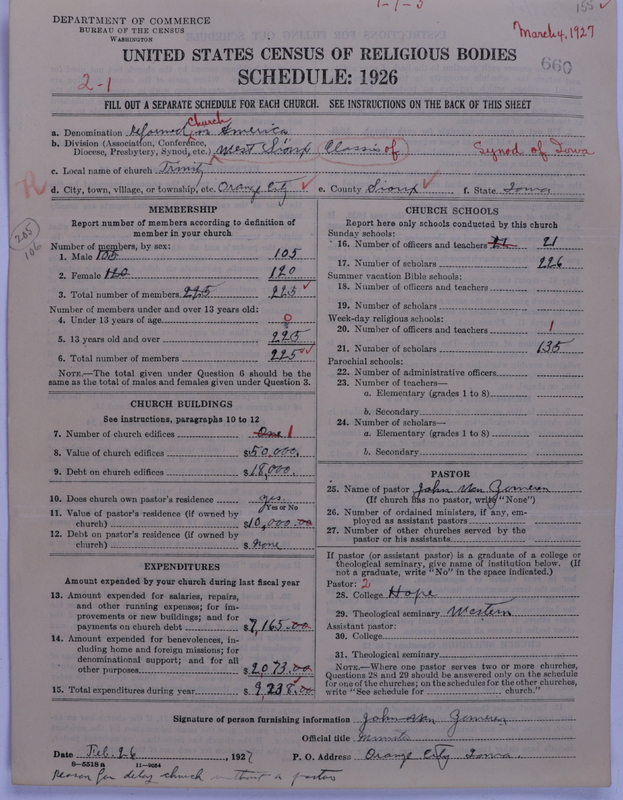 1-1-3
155
DEPARTMENT OF COMMERCE
BUREAU OF THE CENSUS
WASHINGTON
March 4, 1927
660
UNITED STATES CENSUS OF RELIGIOUS BODIES
SCHEDULE: 1926
2-1
FILL OUT A SEPARATE SCHEDULE FOR EACH CHURCH. SEE INSTRUCTIONS ON THE BACK OF THIS SHEET
a. Denomination Reformed Church in America
b. Division (Association, Conference, Diocese, Presbytery, Synod, etc.) West Sioux Classis of Synod of Iowa
c. Local name of church Trinity
d. City, town, village, or township, etc. Orange City e. County Sioux f. State Iowa
205
106
MEMBERSHIP
Report number of members according to definition of member in your church
Number of members, by sex:
1. Male 105 105
2. Female 120 120
3. Total number of members 225 225
Number of members under and over 13 years old:
4. Under 13 years of age 0
5. 13 years old and over 225
6. Total number of members 225
NOTE.—The total given under Question 6 should be the same as the total of males and females given under Question 3.
CHURCH BUILDINGS
See instructions, paragraphs 10 to 12
7. Number of church edifices One 1
8. Value of church edifices $50,000.
9. Debt on church edifices $18,000.
10. Does church own pastor's residence yes
Yes or No
11. Value of pastor's residence (if owned by church) $10,000.00
12. Debt on pastor's residence (if owned by church) $ None
EXPENDITURES
Amount expended by your church during last fiscal year
13. Amount expended for salaries, repairs, and other running expenses; for improvements or new buildings; and for payments on church debt $7,165.00
14. Amount expended for benevolences, including home and foreign missions; for denominational support; and for all other purposes $2,073.00
15. Total expenditures during year $9,238.00
CHURCH SCHOOLS
Report here only schools conducted by this church
Sunday schools:
16. Number of officers and teachers 21 21
17. Number of scholars 226
Summer vacation Bible schools:
18. Number of officers and teachers
19. Number of scholars
Week-day religious schools:
20. Number of officers and teachers 1
21. Number of scholars 135
Parochial schools:
22. Number of administrative officers
23. Number of teachers—
a. Elementary (grades 1 to 8)
b. Secondary
24. Number of scholars—
a. Elementary (grades 1 to 8)
b. Secondary
PASTOR
25. Name of pastor John Van Zomeren
(If church has no pastor, write "None")
26. Number of ordained ministers, if any, employed as assistant pastors
27. Number of other churches served by the pastor or his assistants
If pastor (or assistant pastor) is a graduate of a college or theological seminary, give name of institution below. (If not a graduate, write "No" in the space indicated.)
Pastor: 2
28. College Hope
29. Theological seminary Western
Assistant pastor:
30. College
31. Theological seminary
NOTE.—Where one pastor serves two or more churches, Questions 28 and 29 should be answered only on the schedule for one of the churches; on the schedules for the other churches, write "See schedule for church."
Signature of person furnishing information John Van Zomeren
Official title Minister
Date Feb. 26, 1927 P. O. Address Orange City Iowa.
8—5518 a 11—9084
Reason for delay church without a pastor